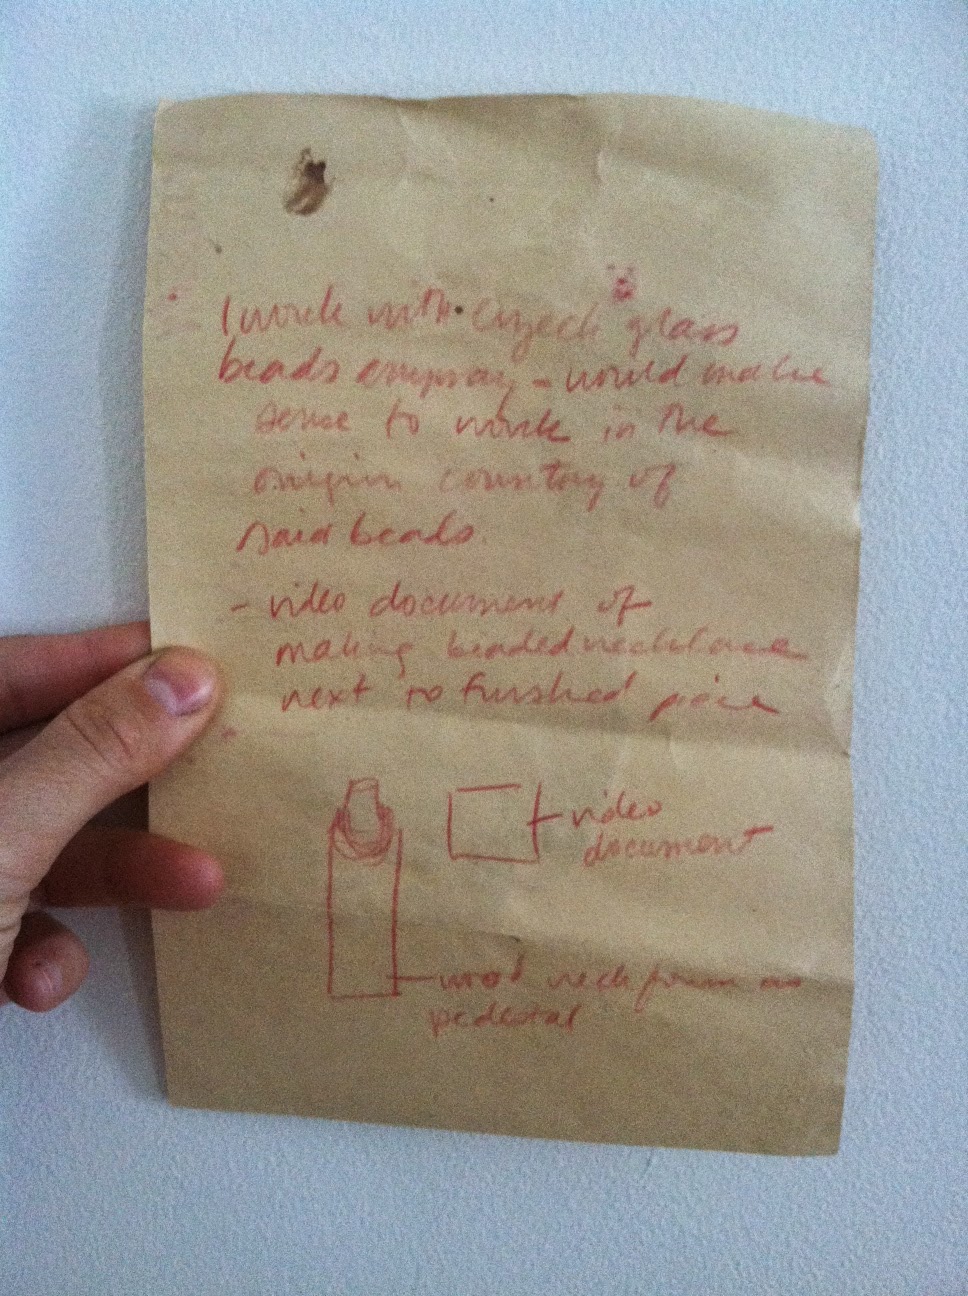 I work with Czech glass
beads anyway - would make
sense to work in the
origin country of
said beads.
- video document of
making beaded necklace
next to finished piece
video
document
wood neck form on
pedestal